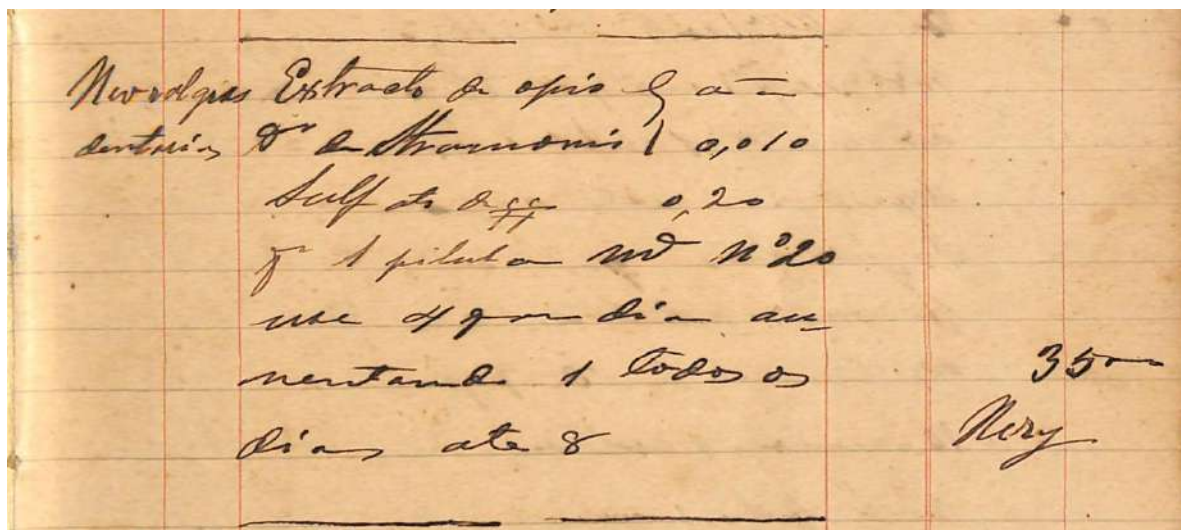 Nevralgias Extracto de opio } aa
dentarias Dº de Stramonio } 0,010
Sulf ato de qq 0,20
pª 1 pilula md nº 20
use 4 por dia au
mentando 1 todos os
dias ate 8
3500
Nery